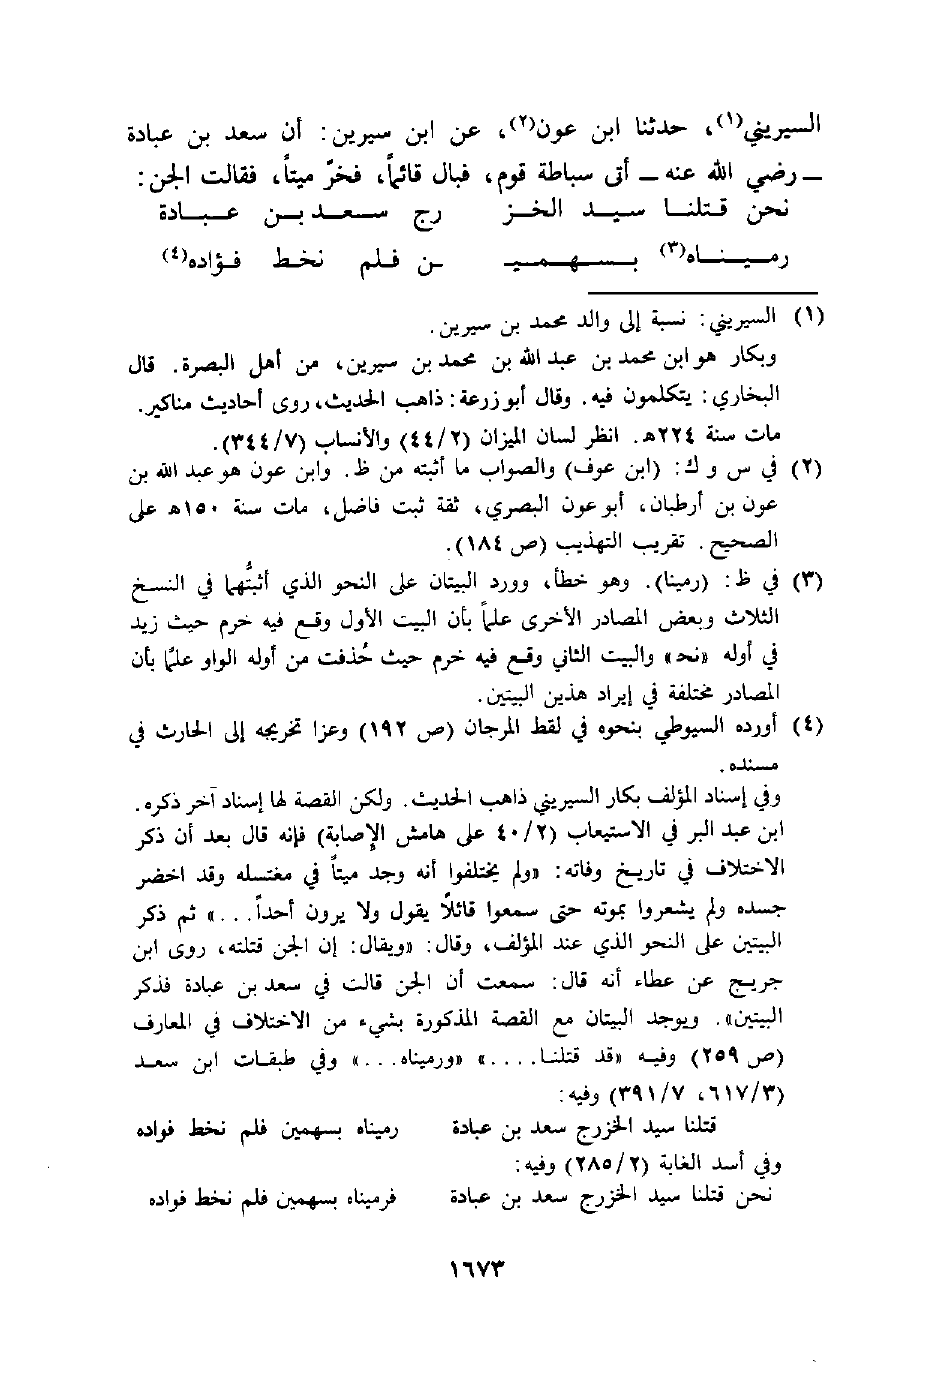 السيريني(١)، حدثنا ابن عون(٢)، عن ابن سيرين: أن سعد بن عبادة
ــ رضي الله عنه ــ أتى سباطة قوم، فبال قائماً، فخرّ ميتاً، فقالت الجن:
نحن قتلنا سيد الخز رج سعد بن عبادة
رميناه(٣) بسهميـ ـن فلم نخط فؤاده(٤)
(١) السيريني: نسبة إلى والد محمد بن سيرين.
وبكار هو ابن محمد بن عبد الله بن محمد بن سيرين، من أهل البصرة. قال
البخاري: يتكلمون فيه. وقال أبو زرعة: ذاهب الحديث، روى أحاديث مناكير.
مات سنة ٢٢٤هـ. انظر لسان الميزان (٤٤/٢) والأنساب (٣٤٤/٧).
(٢) في س و ك: (ابن عوف) والصواب ما أثبته من ظ. وابن عون هو عبد الله بن
عون بن أرطبان، أبو عون البصري، ثقة ثبت فاضل، مات سنة ١٥٠هـ على
الصحيح. تقريب التهذيب (ص ١٨٤).
(٣) في ظ: (رمينا). وهو خطأ، وورد البيتان على النحو الذي أثبتُّها في النسخ
الثلاث وبعض المصادر الأخرى علماً بأن البيت الأول وقع فيه خرم حيث زيد
في أوله «نحـ» والبيت الثاني وقع فيه خرم حيث حُذفت من أوله الواو علمًا بأن
المصادر مختلفة في إيراد هذين البيتين.
(٤) أورده السيوطي بنحوه في لقط المرجان (ص ١٩٢) وعزا تخريجه إلى الحارث في
مسنده.
وفي إسناد المؤلف بكار السيريني ذاهب الحديث. ولكن القصة لها إسناد آخر ذكره.
ابن عبد البر في الاستيعاب (٤٠/٢ على هامش الإصابة) فإنه قال بعد أن ذكر
الاختلاف في تاريخ وفاته: «ولم يختلفوا أنه وجد ميتاً في مغتسله وقد اخضر
جسده ولم يشعروا بموته حتى سمعوا قائلاً يقول ولا يرون أحداً...» ثم ذكر
البيتين على النحو الذي عند المؤلف، وقال: «ويقال: إن الجن قتلته، روى ابن
جريج عن عطاء أنه قال: سمعت أن الجن قالت في سعد بن عبادة فذكر
البيتين». ويوجد البيتان مع القصة المذكورة بشيء من الاختلاف في المعارف
(ص ٢٥٩) وفيه «قد قتلنا....» «ورميناه...» وفي طبقات ابن سعد
(٦١٧/٣، ٣٩١/٧) وفيه:
قتلنا سيد الخزرج سعد بن عبادة رميناه بسهمين فلم نخط فواده
وفي أسد الغابة (٢٨٥/٢) وفيه:
نحن قتلنا سيد الخزرج سعد بن عبادة فرميناه بسهمين فلم نخط فواده
١٦٧٣